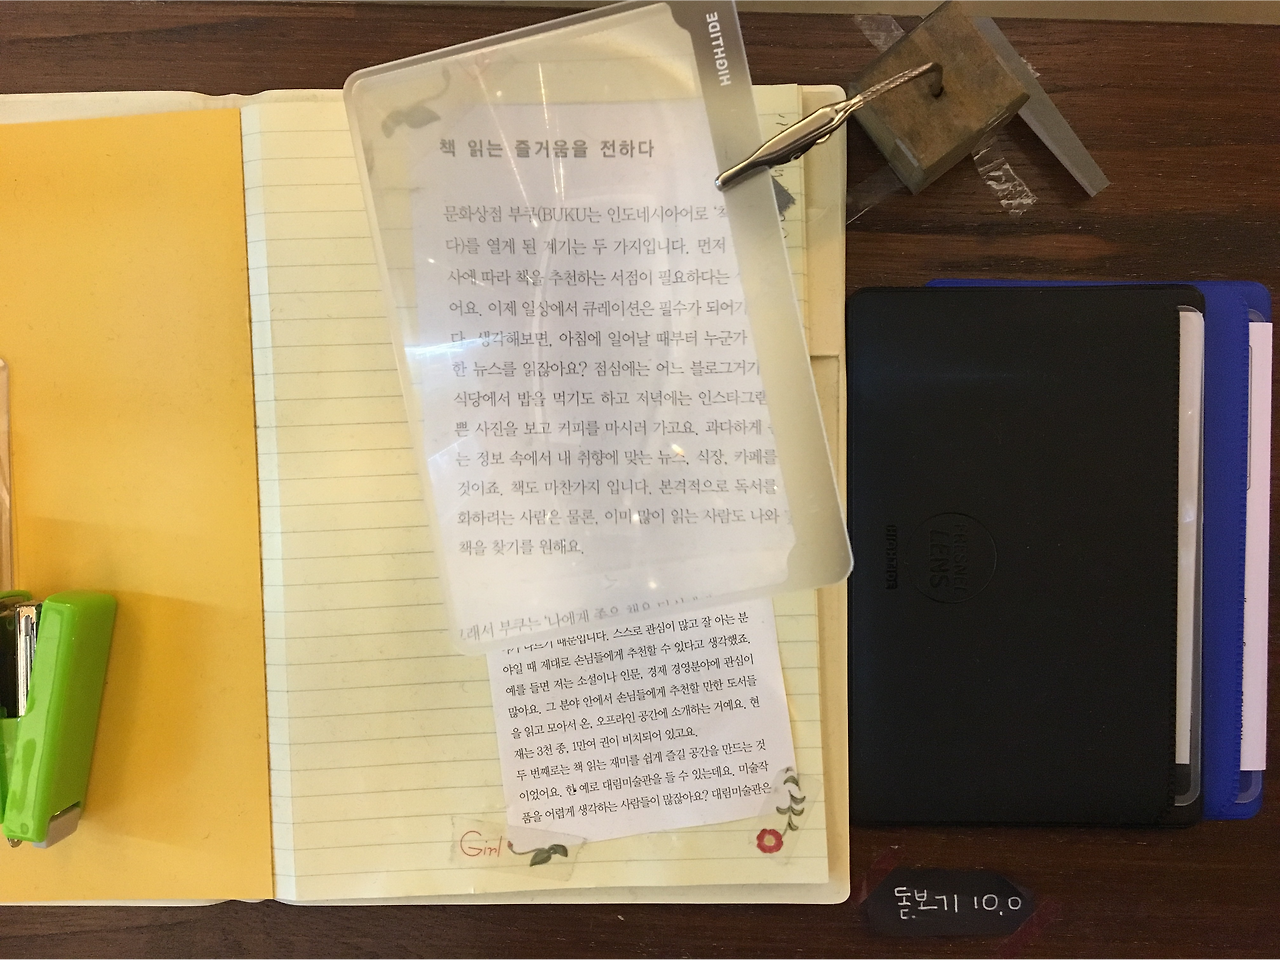 HIGHTIDE
책 읽는 즐거움을 전하다
문화상점 부쿠(BUKU는 인도네시아어로 '책
다)를 열게 된 계기는 두 가지입니다. 먼저
사에 따라 책을 추천하는 서점이 필요하다는
어요. 이제 일상에서 큐레이션은 필수가 되어가
다. 생각해보면, 아침에 일어날 때부터 누군가
한 뉴스를 읽잖아요? 점심에는 어느 블로그거가
식당에서 밥을 먹기도 하고 저녁에는 인스타그램
쁜 사진을 보고 커피를 마시러 가고요. 과다하게
는 정보 속에서 내 취향에 맞는 뉴스, 식장, 카페를
것이죠. 책도 마찬가지 입니다. 본격적으로 독서를
화하려는 사람은 물론, 이미 많이 읽는 사람도 나와
책을 찾기를 원해요.
래서 부쿠는 '나에게 좋은 책을
때문입니다. 스스로 관심이 많고 잘 아는 분
야일 때 제대로 손님들에게 추천할 수 있다고 생각했죠.
예를 들면 저는 소설이나 인문, 경제 경영분야에 관심이
많아요. 그 분야 안에서 손님들에게 추천할 만한 도서들
을 읽고 모아서 온, 오프라인 공간에 소개하는 거예요. 현
재는 3천 종, 1만여 권이 비치되어 있고요.
두 번째로는 책 읽는 재미를 쉽게 즐길 공간을 만드는 것
이었어요. 한 예로 대림미술관을 들 수 있는데요. 미술작
품을 어렵게 생각하는 사람들이 많잖아요? 대림미술관은
Girl
FRESNEL
LENS
HIGHTIDE
돋보기 10,0